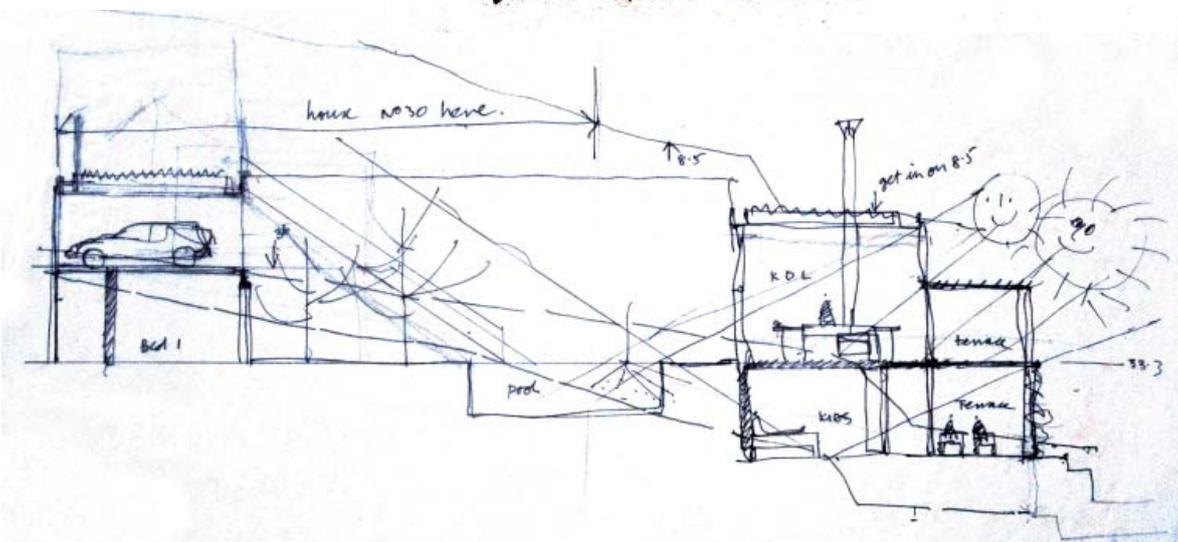 house No 30 here.
↑8.5
get in on 8.5
KDL
Bed 1
terrace
38.3
pool
KIDS
Terrace